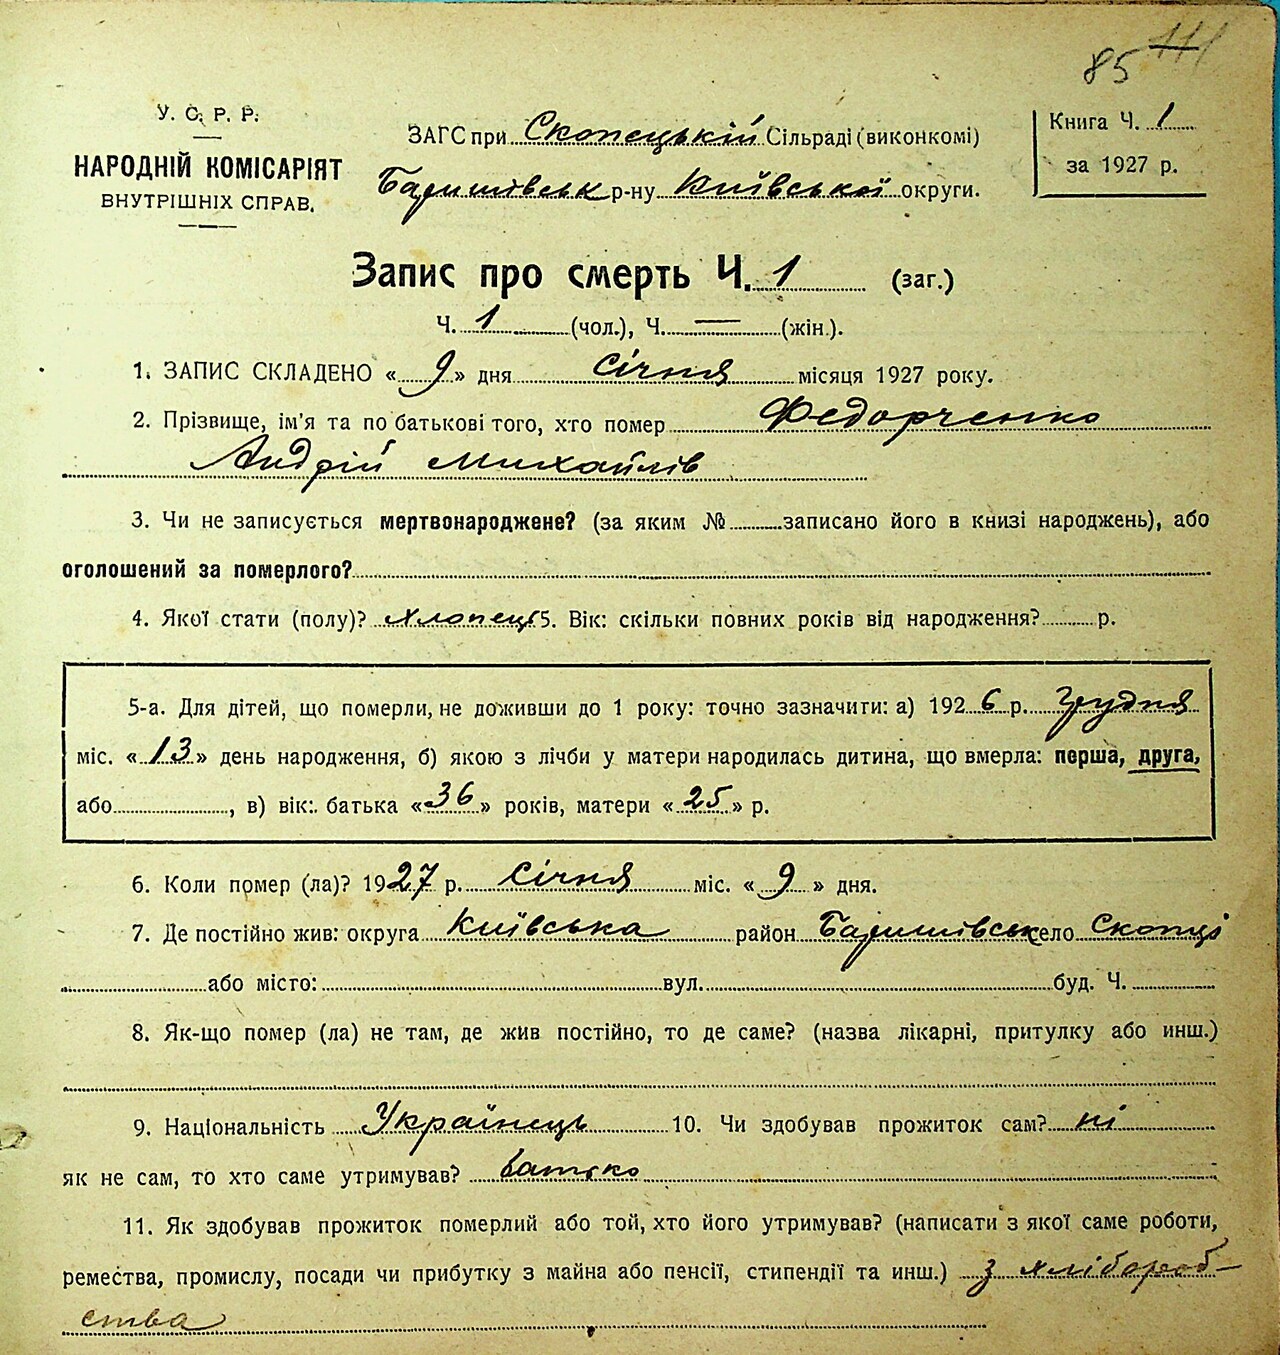 85 111
У. С. Р. Р.
НАРОДНІЙ КОМІСАРІЯТ
ВНУТРІШНІХ СПРАВ.
ЗАГС при Скопецькій Сільраді (виконкомі)
Баришівськ р-ну Київської округи.
Книга Ч. 1
за 1927 р.
Запис про смерть Ч. 1 (заг.)
Ч. 1 (чол.), Ч. — (жін.).
1. ЗАПИС СКЛАДЕНО « 9 » дня січня місяця 1927 року.
2. Прізвище, ім'я та по батькові того, хто помер Федорченко
Андрій Михайлів
3. Чи не записується мертвонароджене? (за яким № записано його в книзі народжень), або
оголошений за померлого?
4. Якої стати (полу)? хлопець 5. Вік: скільки повних років від народження? р.
5-а. Для дітей, що померли, не доживши до 1 року: точно зазначити: а) 1926 р. грудня
міс. « 13 » день народження, б) якою з лічби у матери народилась дитина, що вмерла: перша, друга,
або , в) вік: батька « 36 » років, матери « 25 » р.
6. Коли помер (ла)? 1927 р. січня міс. « 9 » дня.
7. Де постійно жив: округа Київська район Баришівськ село Скопці
або місто: вул. буд. Ч.
8. Як-що помер (ла) не там, де жив постійно, то де саме? (назва лікарні, притулку або инш.)
9. Національність Українець 10. Чи здобував прожиток сам? ні
як не сам, то хто саме утримував? батько
11. Як здобував прожиток померлий або той, хто його утримував? (написати з якої саме роботи,
ремества, промислу, посади чи прибутку з майна або пенсії, стипендії та инш.) з хлібороб-
ства